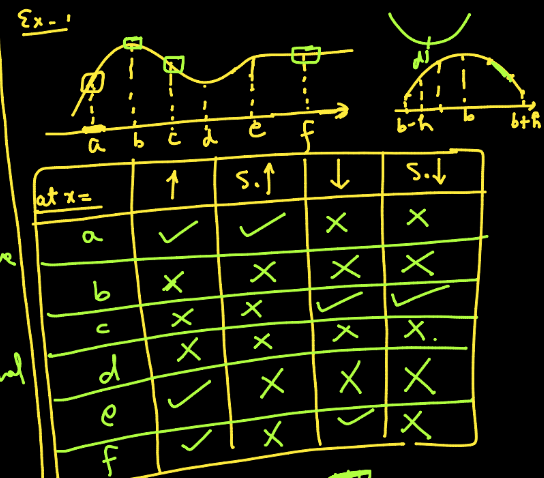 Ex-1
a b c d e f
d
b-h b b+h
at x= ↑ S.↑ ↓ S.↓
a ✓ ✓ × ×
b × × × ×
c × × ✓ ✓
d × × × ×.
e ✓ × × ×
f ✓ × ✓ ×